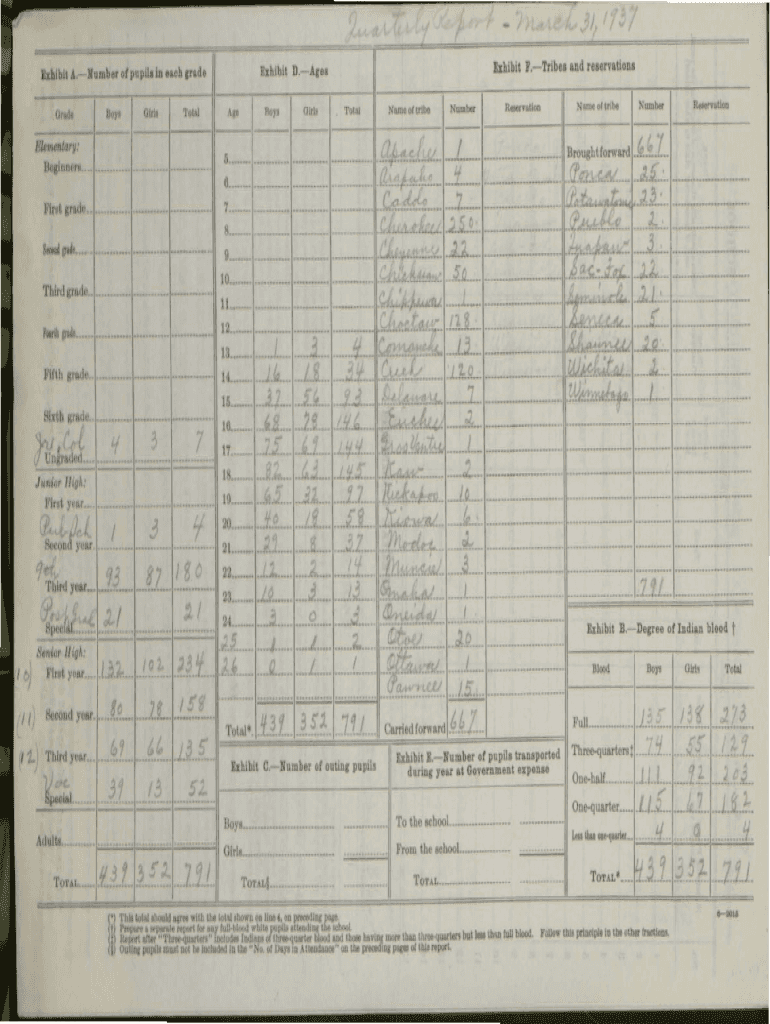 Quarterly Report - March 31, 1937
Exhibit A.—Number of pupils in each grade
Grade Boys Girls Total
Elementary:
Beginners
First grade
Second grade
Third grade
Fourth grade
Fifth grade
Sixth grade
Jr. Col 4 3 7
Ungraded
Junior High:
First year
Pub Sch 1 3 4
Second year
9th 93 87 180
Third year
Post Grad 21 21
Special
Senior High:
(10) First year 132 102 234
(11) Second year 80 78 158
(12) Third year 69 66 135
Voc 39 13 52
Special
Adults
TOTAL 439 352 791
Exhibit D.—Ages
Age Boys Girls Total
5
6
7
8
9
10
11
12
13 1 3 4
14 16 18 34
15 37 56 93
16 68 78 146
17 75 69 144
18 82 63 145
19 65 32 97
20 40 18 58
21 29 8 37
22 12 2 14
23 10 3 13
24 3 0 3
25 1 1 2
26 0 1 1
Total* 439 352 791
Exhibit C.—Number of outing pupils
Boys
Girls
TOTAL§
Exhibit F.—Tribes and reservations
Name of tribe Number Reservation
Apache 1
Arapaho 4
Caddo 7
Cherokee 250
Cheyenne 22
Chickasaw 50
Chippewa 1
Choctaw 128
Comanche 13
Creek 120
Delaware 7
Euchee 2
Gros Ventre 1
Kaw 2
Kickapoo 10
Kiowa 6
Modoc 2
Muncie 3
Omaha 1
Oneida 1
Otoe 20
Ottawa 1
Pawnee 15
Carried forward 667
Exhibit E.—Number of pupils transported
during year at Government expense
To the school
From the school
TOTAL
Name of tribe Number Reservation
Brought forward 667
Ponca 25
Potawatomi 23
Pueblo 2
Quapaw 3
Sac-Fox 22
Seminole 21
Seneca 5
Shawnee 20
Wichita 2
Winnebago 1
791
Exhibit B.—Degree of Indian blood †
Blood Boys Girls Total
Full 135 138 273
Three-quarters‡ 74 55 129
One-half 111 92 203
One-quarter 115 67 182
Less than one-quarter 4 0 4
TOTAL* 439 352 791
(*) This total should agree with the total shown on line 4, on preceding page.
(†) Prepare a separate report for any full-blood white pupils attending the school.
(‡) Report after "Three-quarters" includes Indians of three-quarter blood and those having more than three-quarters but less than full blood. Follow this principle in the other fractions.
(§) Outing pupils must not be included in the "No. of Days in Attendance" on the preceding pages of this report.